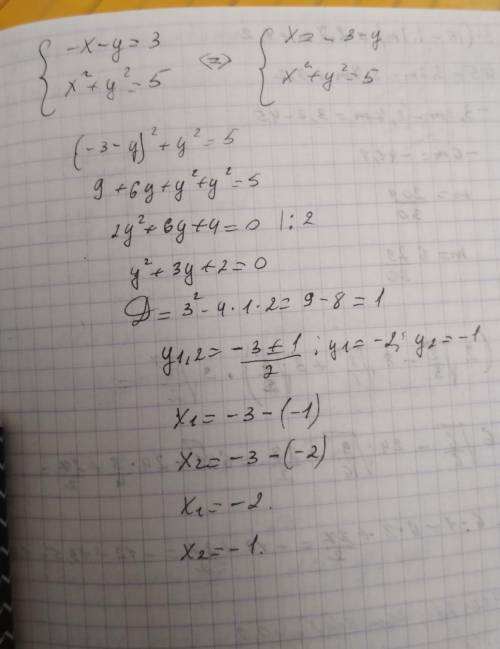 { -x-y=3 <=> { x=-3-y
{ x²+y²=5 { x²+y²=5
(-3-y)²+y²=5
9+6y+y²+y²=5
2y²+6y+4=0 |:2
y²+3y+2=0
D=3²-4·1·2=9-8=1
y1,2=(-3±1)/2; y1=-2; y2=-1
x1=-3-(-1)
x2=-3-(-2)
x1=-2.
x2=-1.